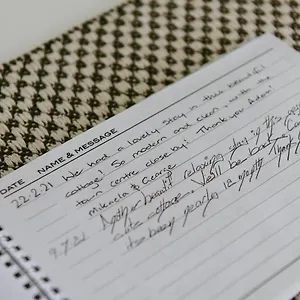 DATE NAME & MESSAGE
22.2.21 We had a lovely stay in this beautiful
cottage! So modern and clean, with the
town centre close by! Thank you
Mikaela & George
Another relaxing stay in this
cute cottage. We'll be back
its been nearly 18 months